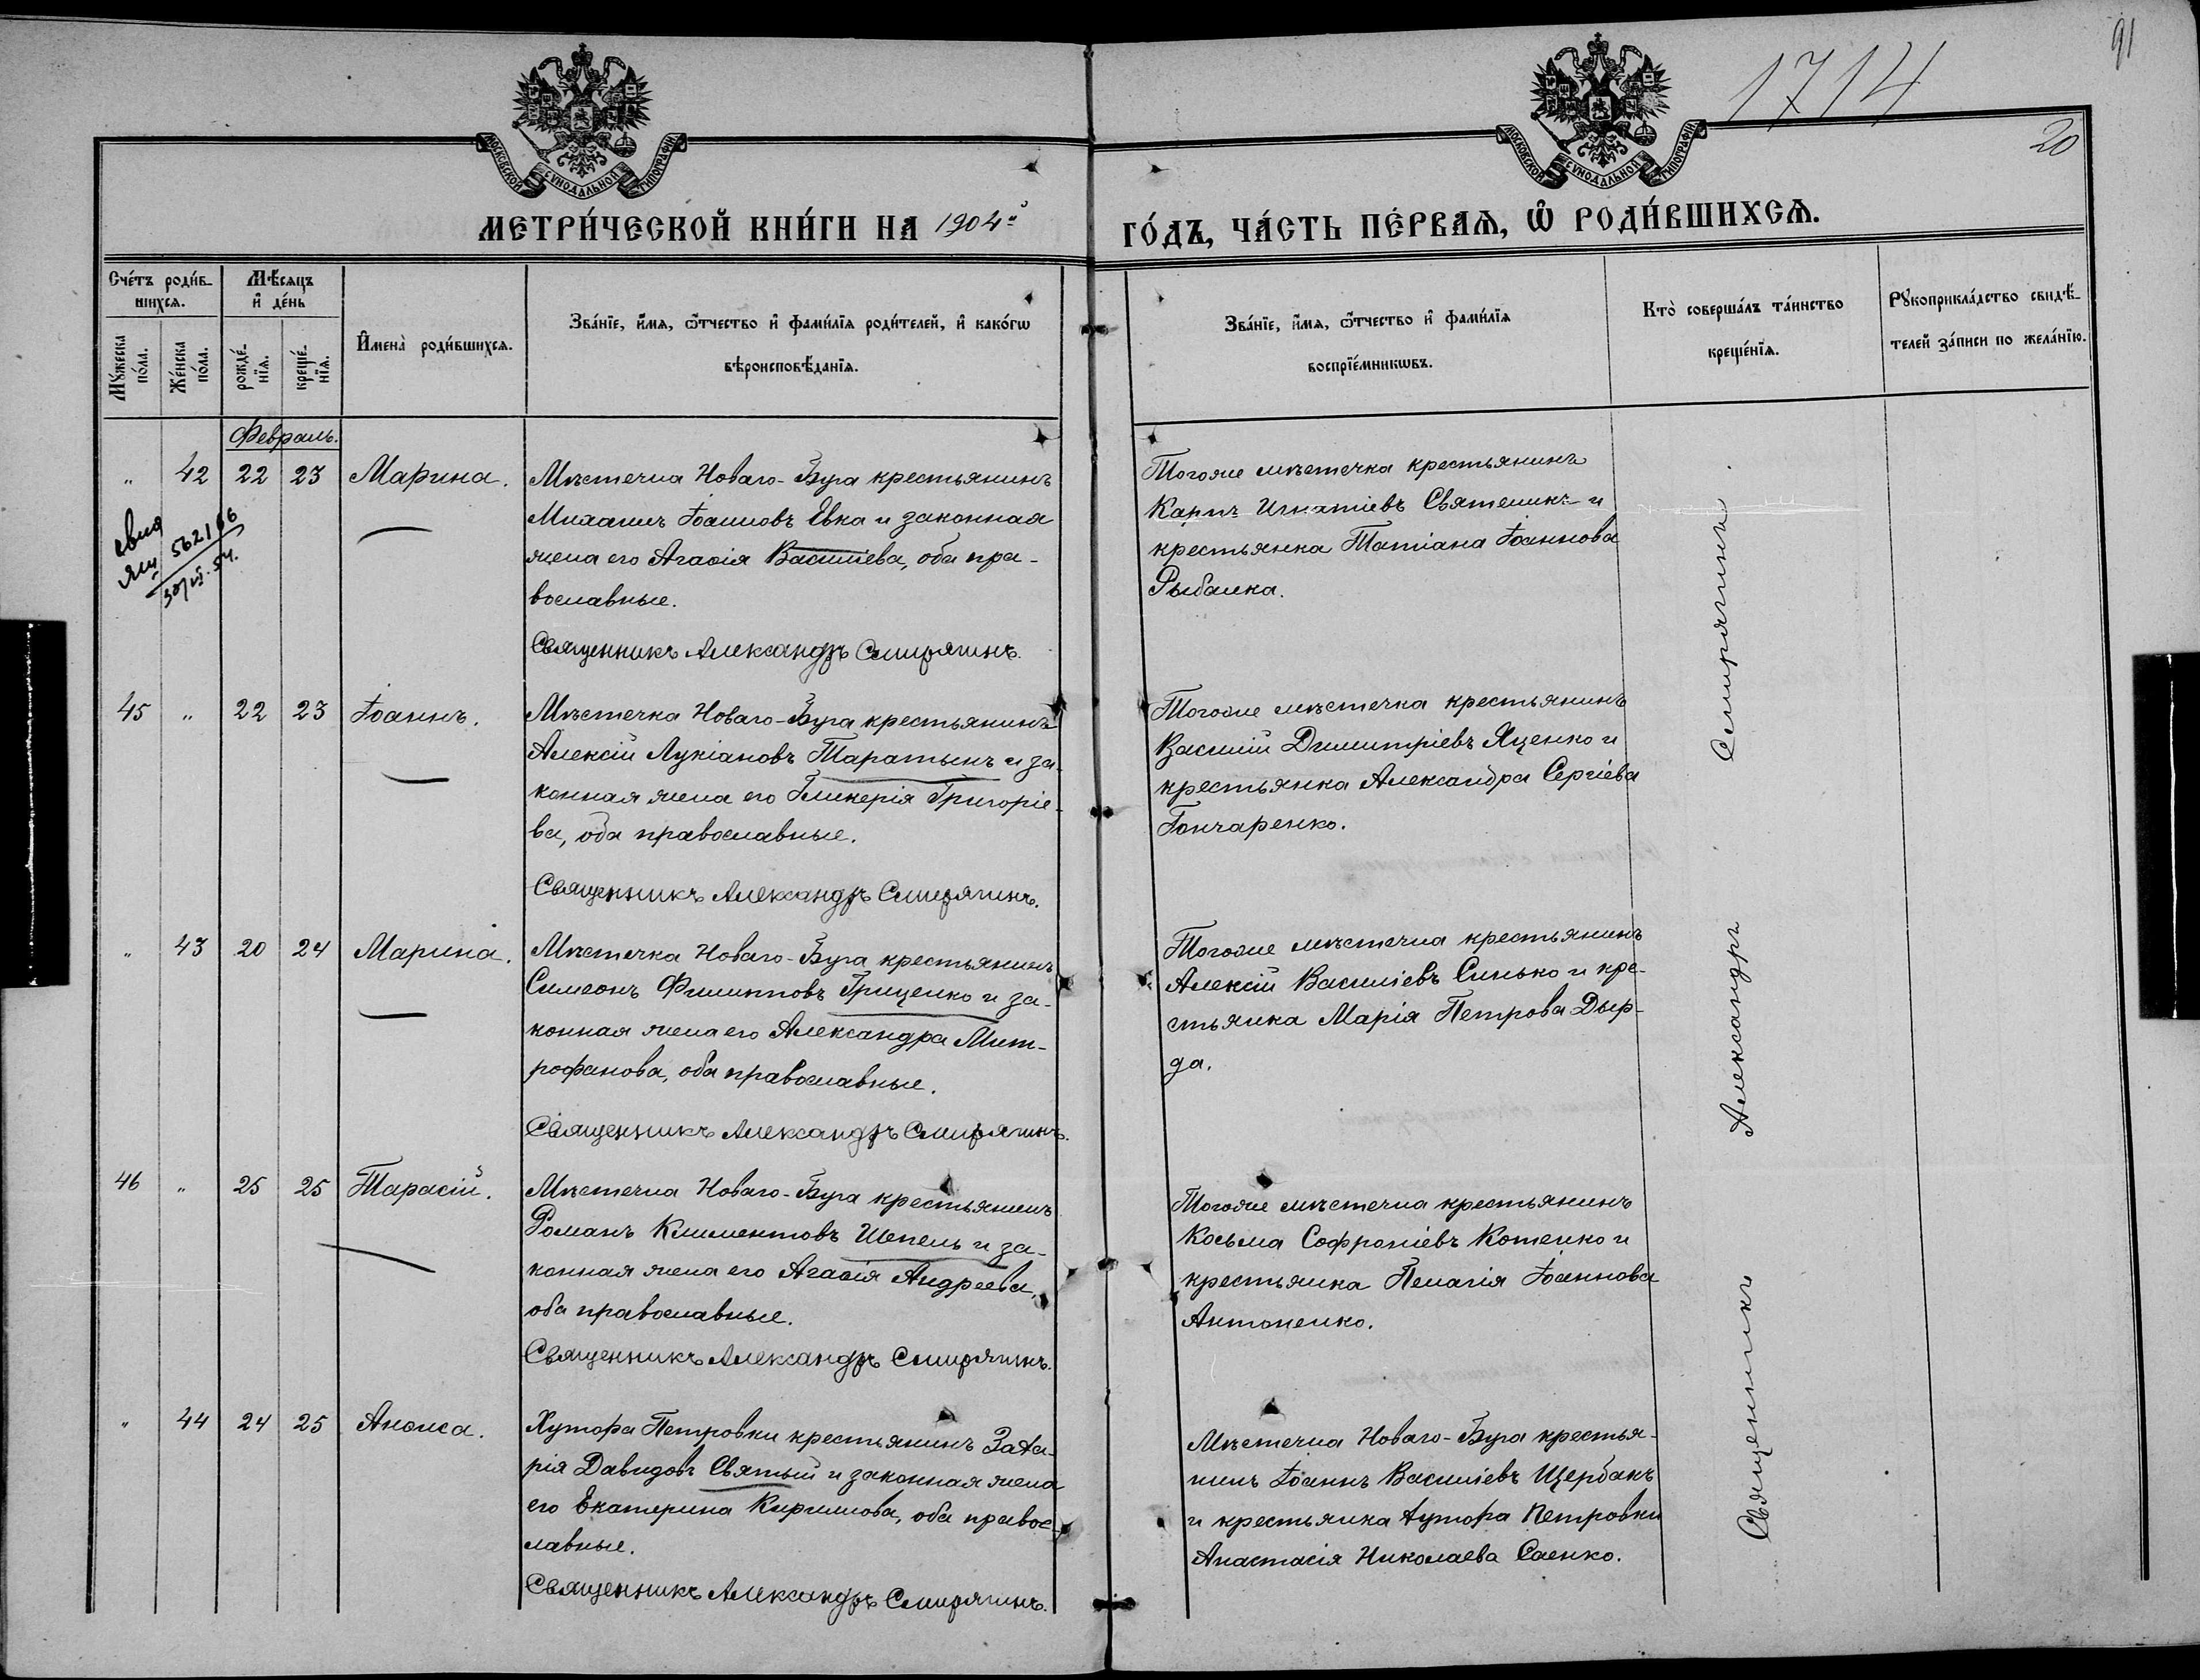 1714
91
20
МОСКОВСКОЙ СУНОДАЛЬНОЙ ТИПОГРАФІИ
МОСКОВСКОЙ СУНОДАЛЬНОЙ ТИПОГРАФІИ
МЕТРИ́ЧЕСКОЙ КНИ́ГИ НА 1904й
ГО́ДЪ, ЧА́СТЬ ПЕ́РВАѦ, Ѡ҆ РОДИ́ВШИХСѦ.
Сче́тъ роди́в-
шихсѧ.
Мꙋ́жеска по́ла.
Же́нска по́ла.
Мѣ́сѧцъ
и҆ де́нь
рожде́-
нїѧ.
креще́-
нїѧ.
И҆мена̀ роди́вшихсѧ.
Зва́нїе, и҆́мѧ, ѻ҆́тчество и҆ фами́лїѧ роди́телей, и҆ како́гѡ
вѣроисповѣ́данїѧ.
Зва́нїе, и҆́мѧ, ѻ҆́тчество и҆ фами́лїѧ
воспрїе́мникѡвъ.
Кто̀ соверша́лъ та́инство
креще́нїѧ.
Рꙋкоприкла́дство свидѣ́-
телей за́писи по жела́нїю.
Февраль.
„ 42 22 23 Марина.
Мѣстечка Новаго-Буга крестьянинъ
Михаилъ Іоанновъ Евка и законная
жена его Агаѳія Васильева, оба пра-
вославные.
Священникъ Александръ Смирягинъ.
Тогоже мѣстечка крестьянинъ
Карпъ Игнатіевъ Святеникъ и
крестьянка Татіана Іоаннова
Рыбалка.
45 „ 22 23 Іоаннъ.
Мѣстечка Новаго-Буга крестьянинъ
Алексій Лукіановъ Таратынъ и за-
конная жена его Гликерія Григоріе-
ва, оба православные.
Священникъ Александръ Смирягинъ.
Тогоже мѣстечка крестьянинъ
Василій Димитріевъ Яценко и
крестьянка Александра Сергіева
Гончаренко.
„ 43 20 24 Марина.
Мѣстечка Новаго-Буга крестьянинъ
Симеонъ Филипповъ Гриценко и за-
конная жена его Александра Мит-
рофанова, оба православные.
Священникъ Александръ Смирягинъ.
Тогоже мѣстечка крестьянинъ
Алексій Василіевъ Синько и кре-
стьянка Марія Петрова Дыр-
да.
46 „ 25 25 Тарасій.
Мѣстечка Новаго-Буга крестьянинъ
Романъ Климентовъ Шепель и за-
конная жена его Агаѳія Андреева,
оба православные.
Священникъ Александръ Смирягинъ.
Тогоже мѣстечка крестьянинъ
Косьма Софроніевъ Котенко и
крестьянка Пелагія Іоаннова
Антоненко.
„ 44 24 25 Анѳиса.
Хутора Петровки крестьянинъ Заха-
рія Давидовъ Святый и законная жена
его Екатерина Кириллова, оба правос-
лавные.
Священникъ Александръ Смирягинъ.
Мѣстечка Новаго-Буга крестья-
нинъ Іоаннъ Василіевъ Щербакъ
и крестьянка хутора Петровки
Анастасія Николаева Саенко.
Священникъ Александръ Смирягинъ